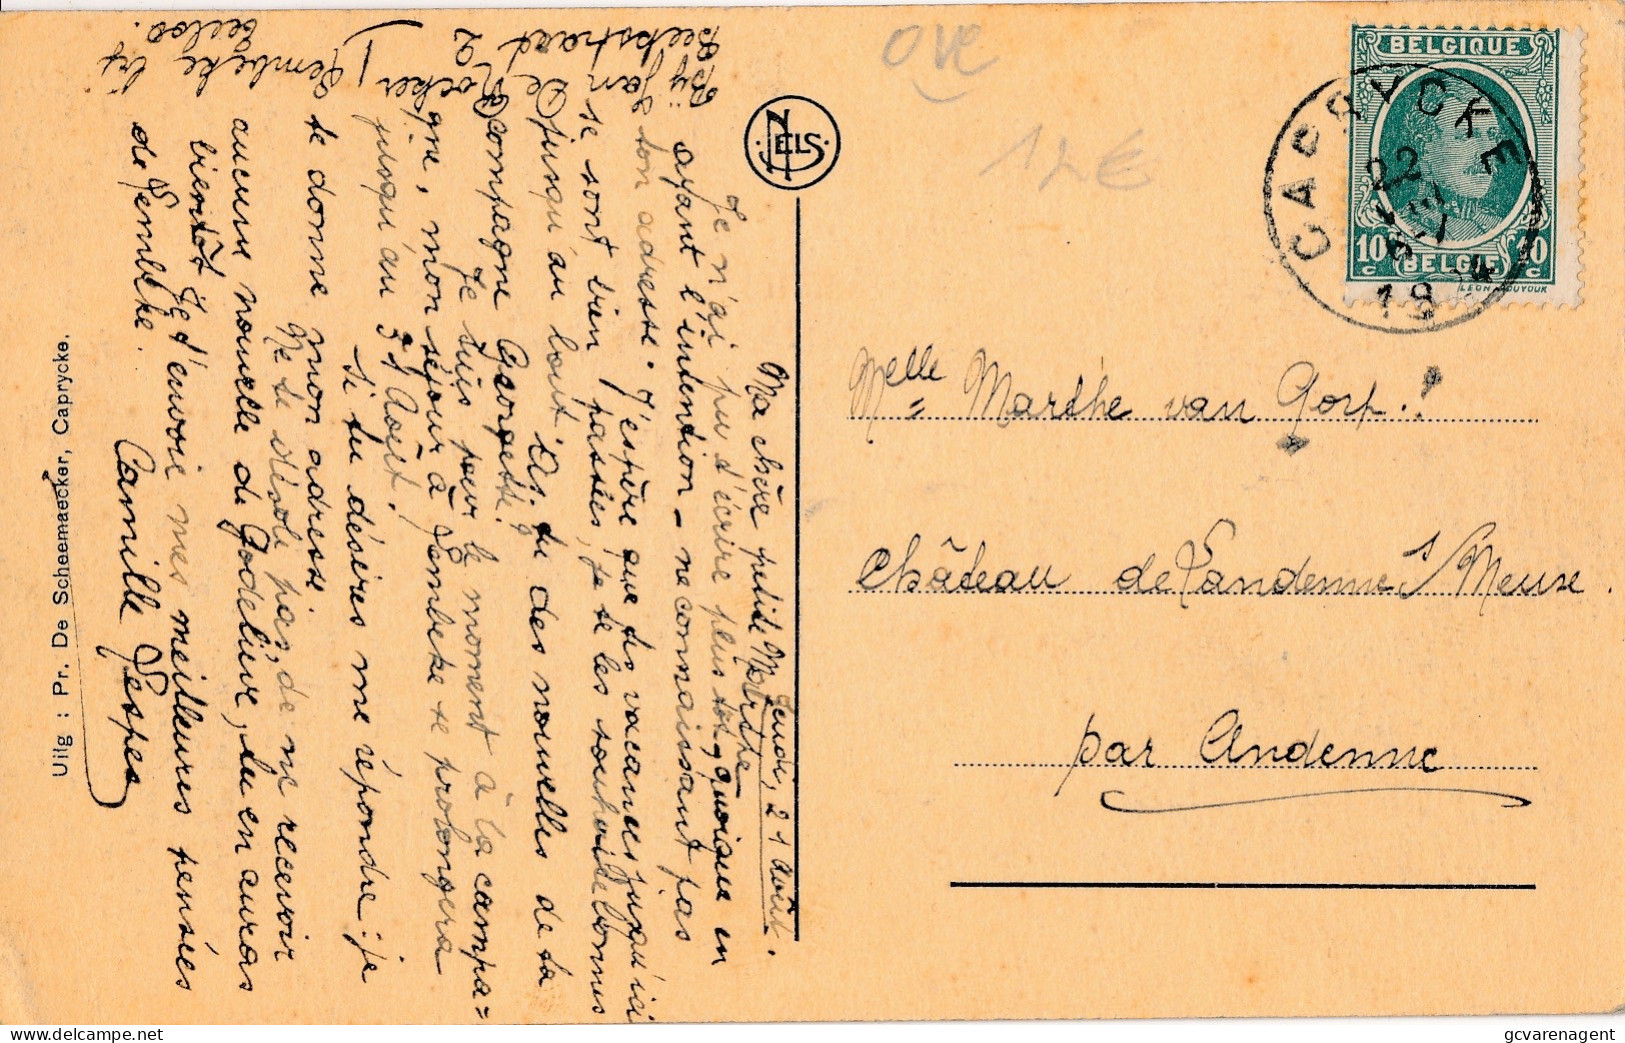 Jeudi, 21 août.
Ma chère petite Marthe
Je n'ai pu t'écrire plus tôt, quoique en
ayant l'intention - ne connaissant pas
ton adresse. J'espère que tes vacances jusqu'ici
se sont bien passées, je te les souhaite bonnes
jusqu'au bout. As-tu des nouvelles de ta
compagne Georgette?
Je suis pour le moment à la campa=
gne, mon séjour à Lembeke se prolongera
jusqu'au 31 Août!
Si tu désires me répondre: je
te donne mon adresse.
Ne te désole pas, de ne recevoir
aucune nouvelle de Godelive, tu en auras
bientôt. Je t'envoie mes meilleures pensées
de Lembeke.
Camille Lespes
Bij Jan De Nocker
Beekstraat 2
Lembeke bij
Eecloo.
NELS
Uitg : Pr. De Scheemaecker, Caprycke.
ove
12€
BELGIQUE
10 c
BELGIË
10 c
LEON HOUYOUX
CAPRYCKE
22
1924
Melle Marthe van Gorp.
Château de Vandenne s/Meuse.
par Andenne
delcampe.net
gcvarenagent